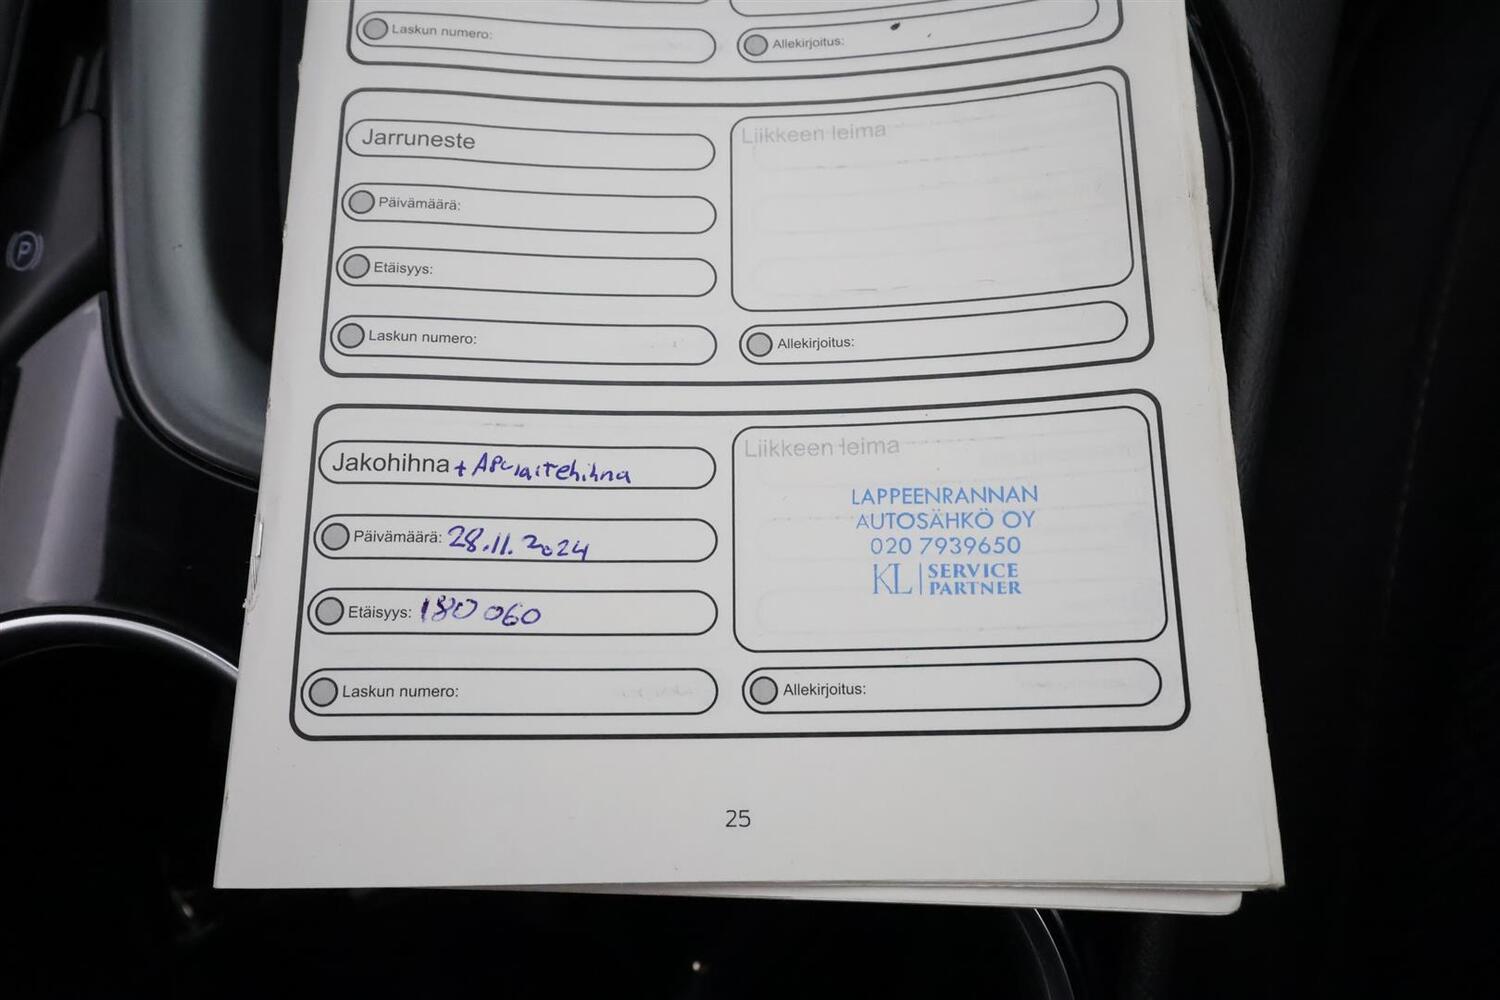 Laskun numero:
Allekirjoitus:
Jarruneste
Liikkeen leima
Päivämäärä:
Etäisyys:
Laskun numero:
Allekirjoitus:
Jakohihna + Apulaitehihna
Liikkeen leima
LAPPEENRANNAN
AUTOSÄHKÖ OY
020 7939650
KL SERVICE
PARTNER
Päivämäärä: 28.11.2024
Etäisyys: 180 060
Laskun numero:
Allekirjoitus:
25
P